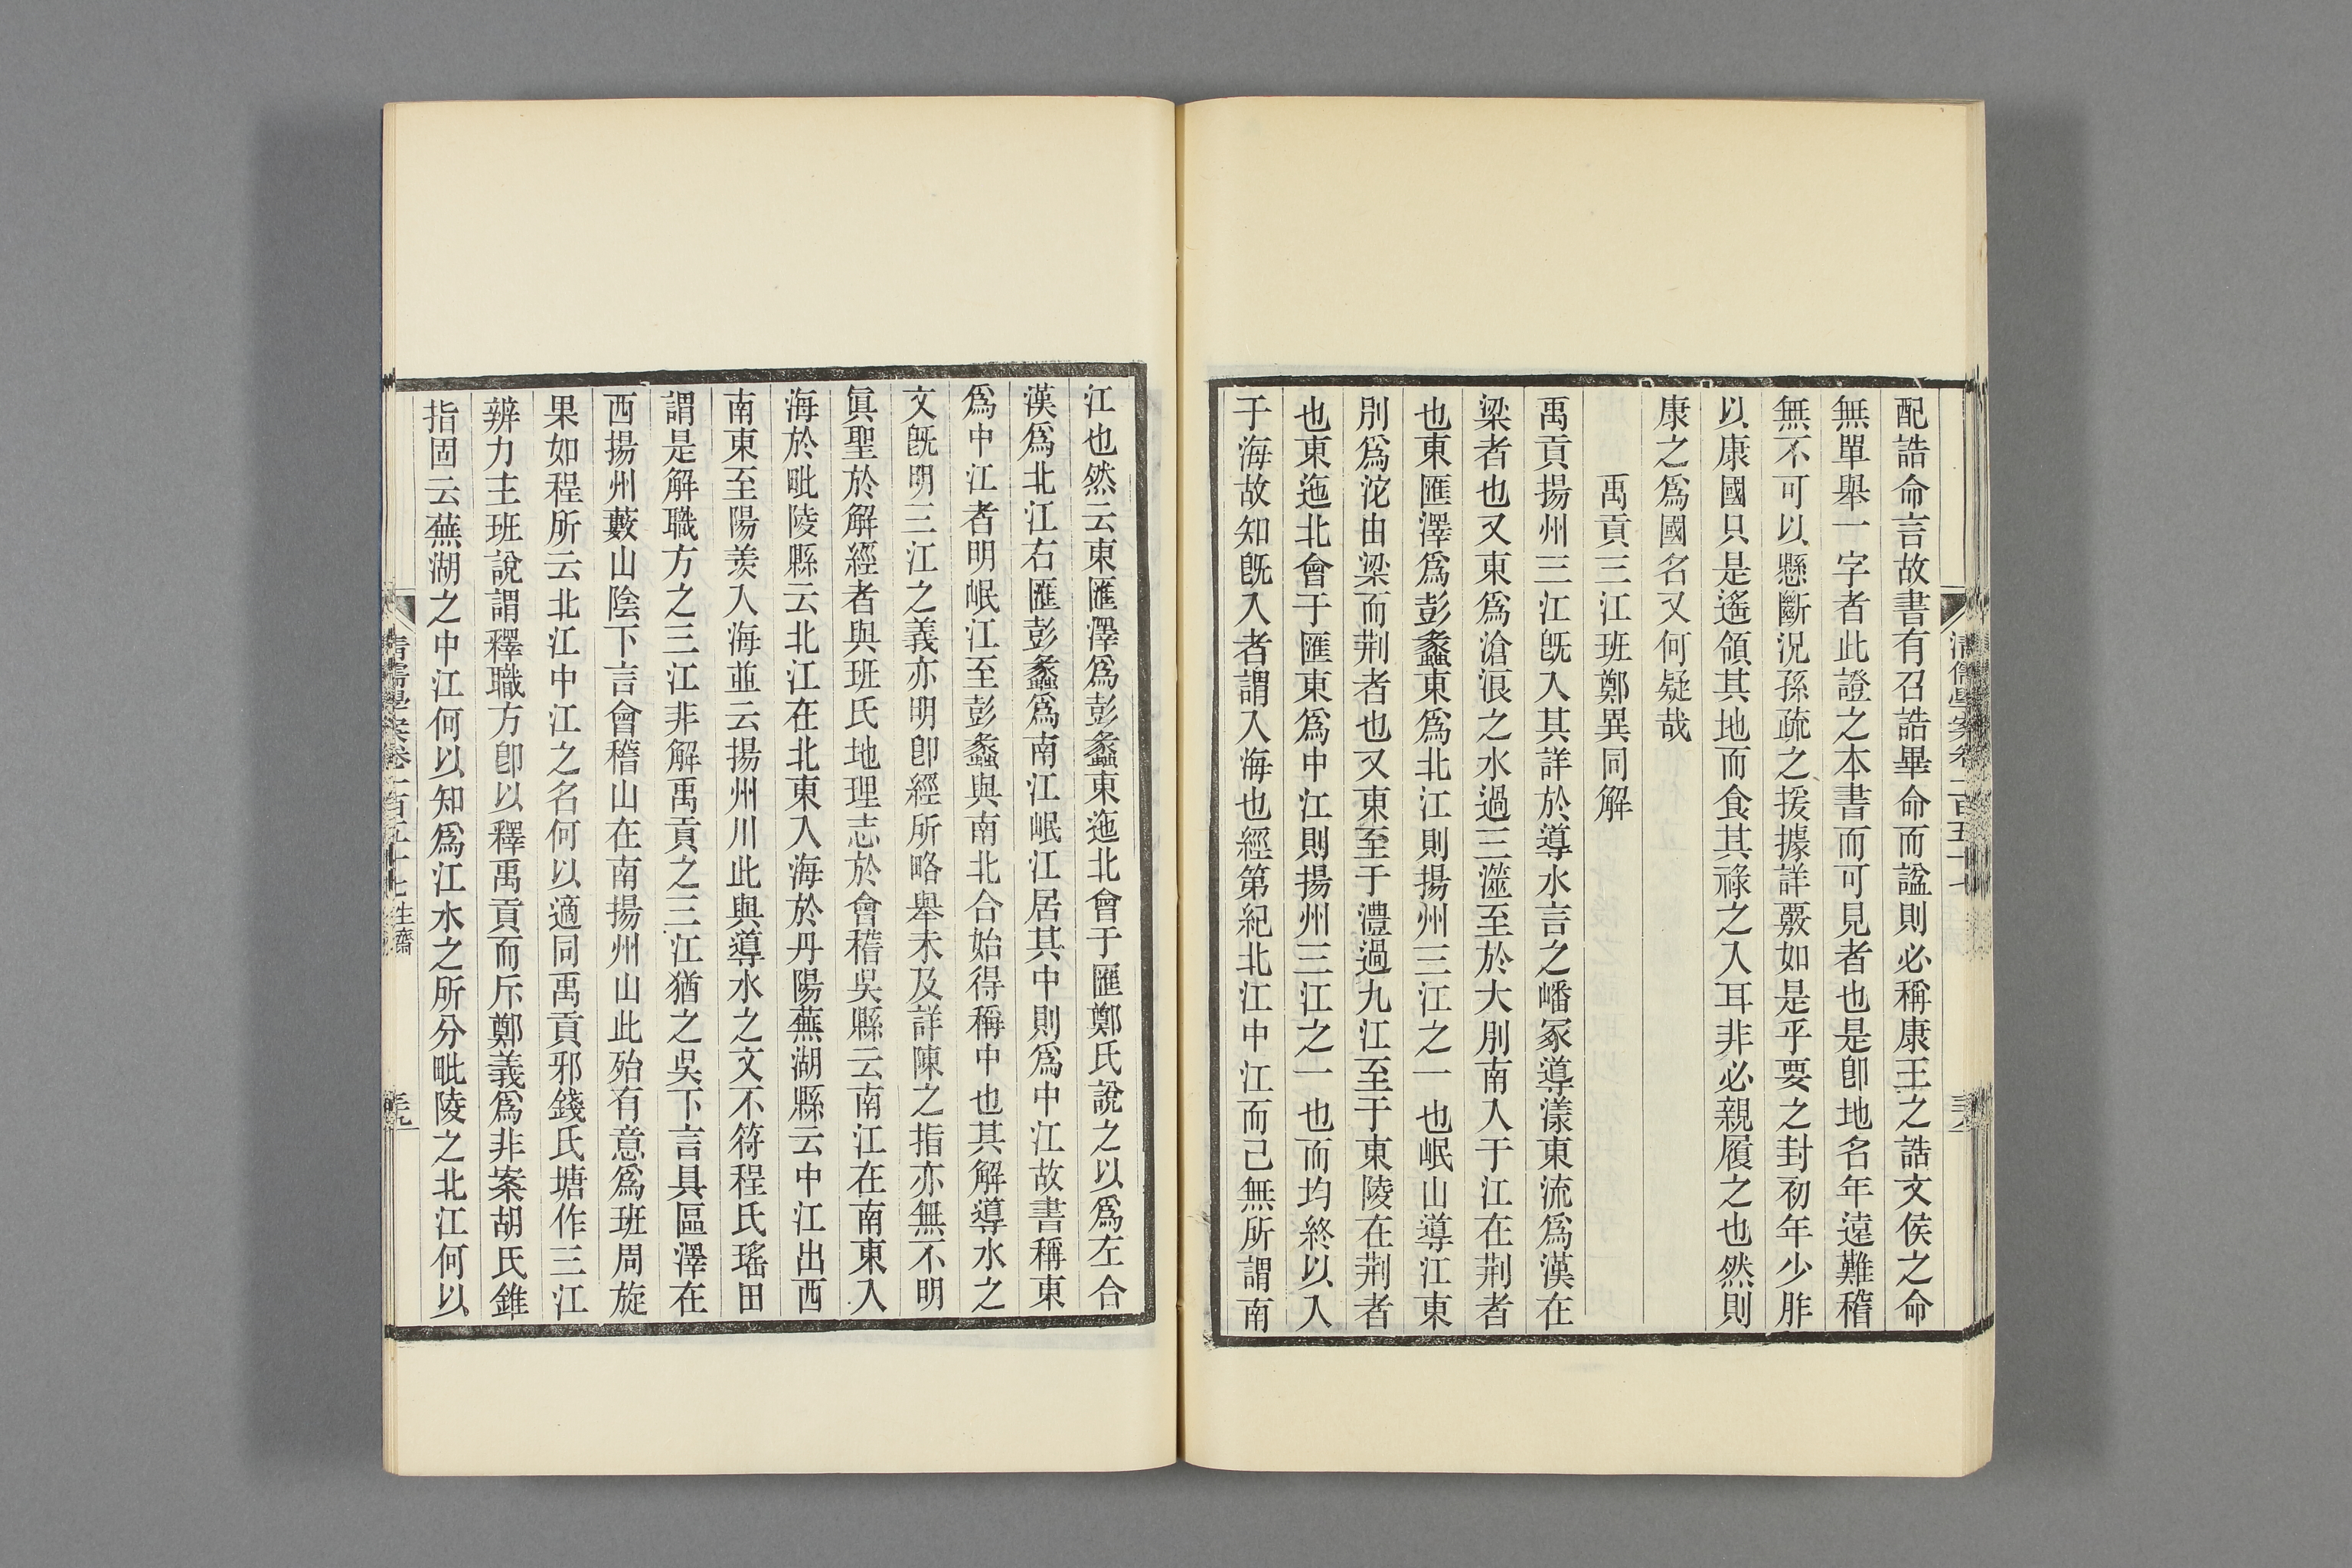 配誥命言故書有召誥畢命而諡則必稱康王之誥文侯之命
無單舉一字者此證之本書而可見者也是卽地名年遠難稽
無不可以懸斷況孫疏之援據詳覈如是乎要之封初年少胙
以康國只是遙領其地而食其祿之入耳非必親履之也然則
康之爲國名又何疑哉
禹貢三江班鄭異同解
禹貢揚州三江旣入其詳於導水言之嶓冢導漾東流爲漢在
梁者也又東爲滄浪之水過三澨至於大別南入于江在荆者
也東匯澤爲彭蠡東爲北江則揚州三江之一也岷山導江東
別爲沱由梁而荆者也又東至于澧過九江至于東陵在荆者
也東迤北會于匯東爲中江則揚州三江之一也而均終以入
于海故知旣入者謂入海也經第紀北江中江而已無所謂南
清儒學案卷一百五十七
三八
江也然云東匯澤爲彭蠡東迤北會于匯鄭氏說之以爲左合
漢爲北江右匯彭蠡爲南江岷江居其中則爲中江故書稱東
爲中江者明岷江至彭蠡與南北合始得稱中也其解導水之
文旣明三江之義亦明卽經所略舉未及詳陳之指亦無不明
眞聖於解經者與班氏地理志於會稽吳縣云南江在南東入
海於毗陵縣云北江在北東入海於丹陽蕪湖縣云中江出西
南東至陽羨入海並云揚州川此與導水之文不符程氏瑤田
謂是解職方之三江非解禹貢之三江猶之吳下言具區澤在
西揚州藪山陰下言會稽山在南揚州山此殆有意爲班周旋
果如程所云北江中江之名何以適同禹貢邪錢氏塘作三江
辨力主班說謂釋職方卽以釋禹貢而斥鄭義爲非案胡氏錐
指固云蕪湖之中江何以知爲江水之所分毗陵之北江何以
清儒學案卷一百五十七
生齋
三九